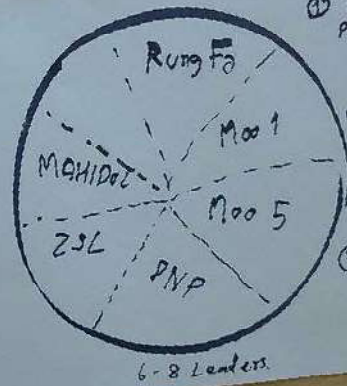 Rung Fa
Moo 1
MAHIDOL
Moo 5
ZSL
PNP
6-8 Leaders.